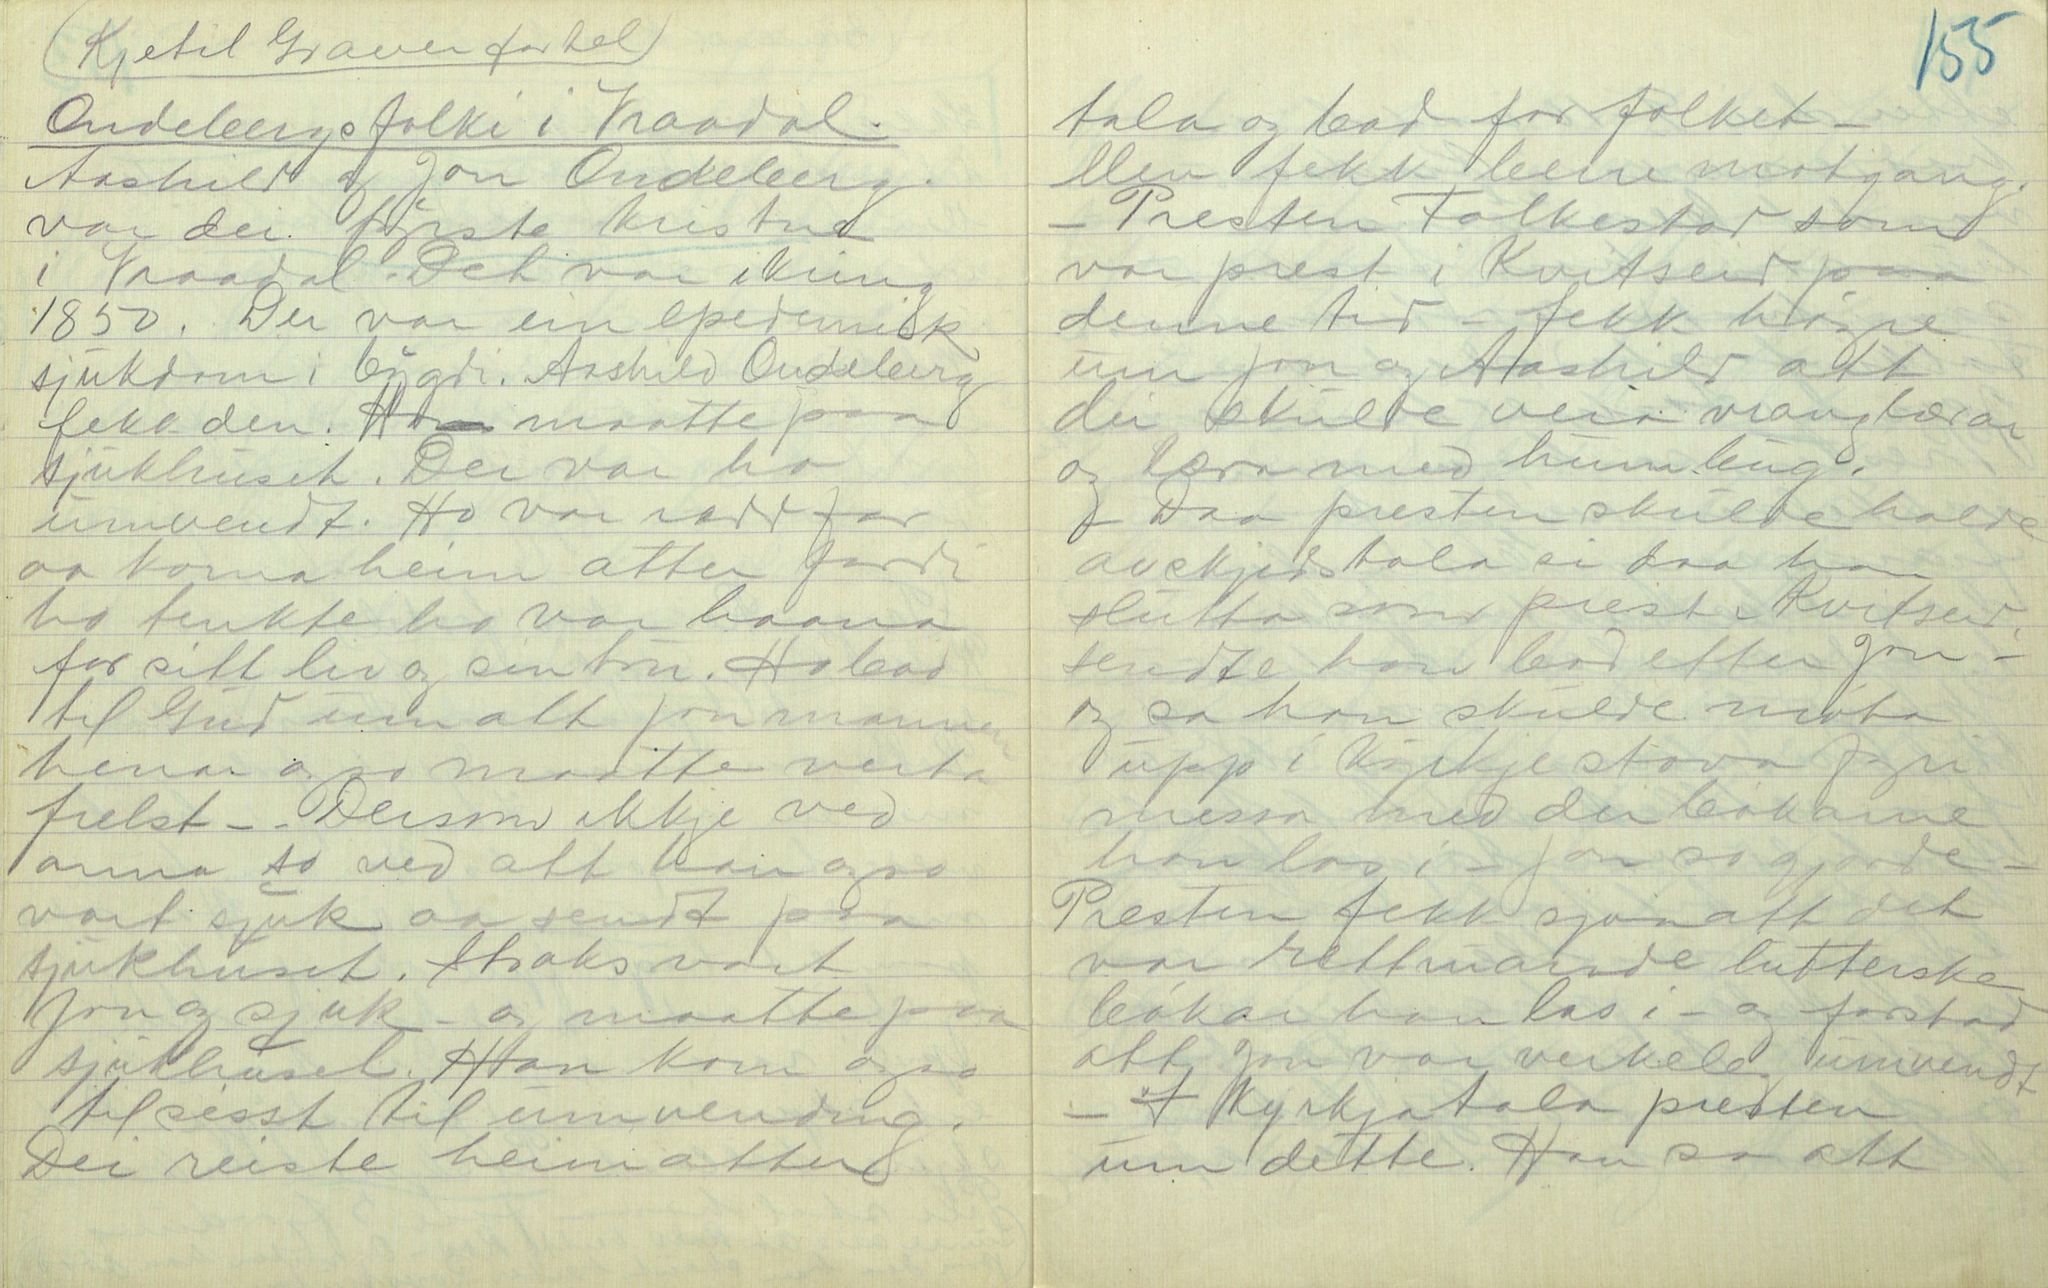 (Kjetil Graver fortel)
Ondebergsfolki i Vraadal.
Aashild og Jon Ondeberg.
var dei fyrste kristne
i Vraadal. Det var ikring
1850. Der var ein epedemisk
sjukdom i bygdi. Aashild Ondeberg
fekk den. Ho maatte paa
sjukhuset. Der var ho
umvendt. Ho var rædd for
aa koma heim atter fordi
ho tenkte ho var baana
for sitt liv og sin bøn. Ho bad
til Gud um att Jon mannen
hennar ogso maatte verta
frelst -- Dersom ikkje ved
anna so ved att han ogso
vart sjuk aa sendt paa
sjukhuset. Straks vart
Jon og sjuk - og maatte paa
sjukhuset. Han kom ogso
til sisst til umvending.
Dei reiste heim atter
155
tala og bad for folket -
Men fekk berre motgang.
- Presten Folkestad som
var prest i Kvitseid paa
denne tid - fekk høyre
um Jon og Aashild att
dei skulde vera vranglærar
og læra med humbug.
- Daa presten skulde halde
avskjedstala si daa han
slutta som prest i Kvitseid,
sendte han bod etter Jon -
og sa han skulde møta
upp i Kyrkjestova fyri
messa med dei bøkarne
han las i - Jon so gjorde -
Presten fekk sjaa att det
var rettmande lutterske
bøkar han las i - og forstod
att Jon var verkeleg umvendt
- I Kyrkja tala presten
um dette. Han sa att